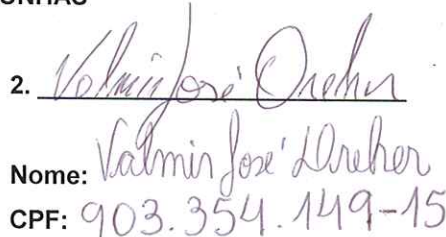 UNHAS
2. Valmir José Dreher
Nome: Valmir José Dreher
CPF: 903.354.149-15